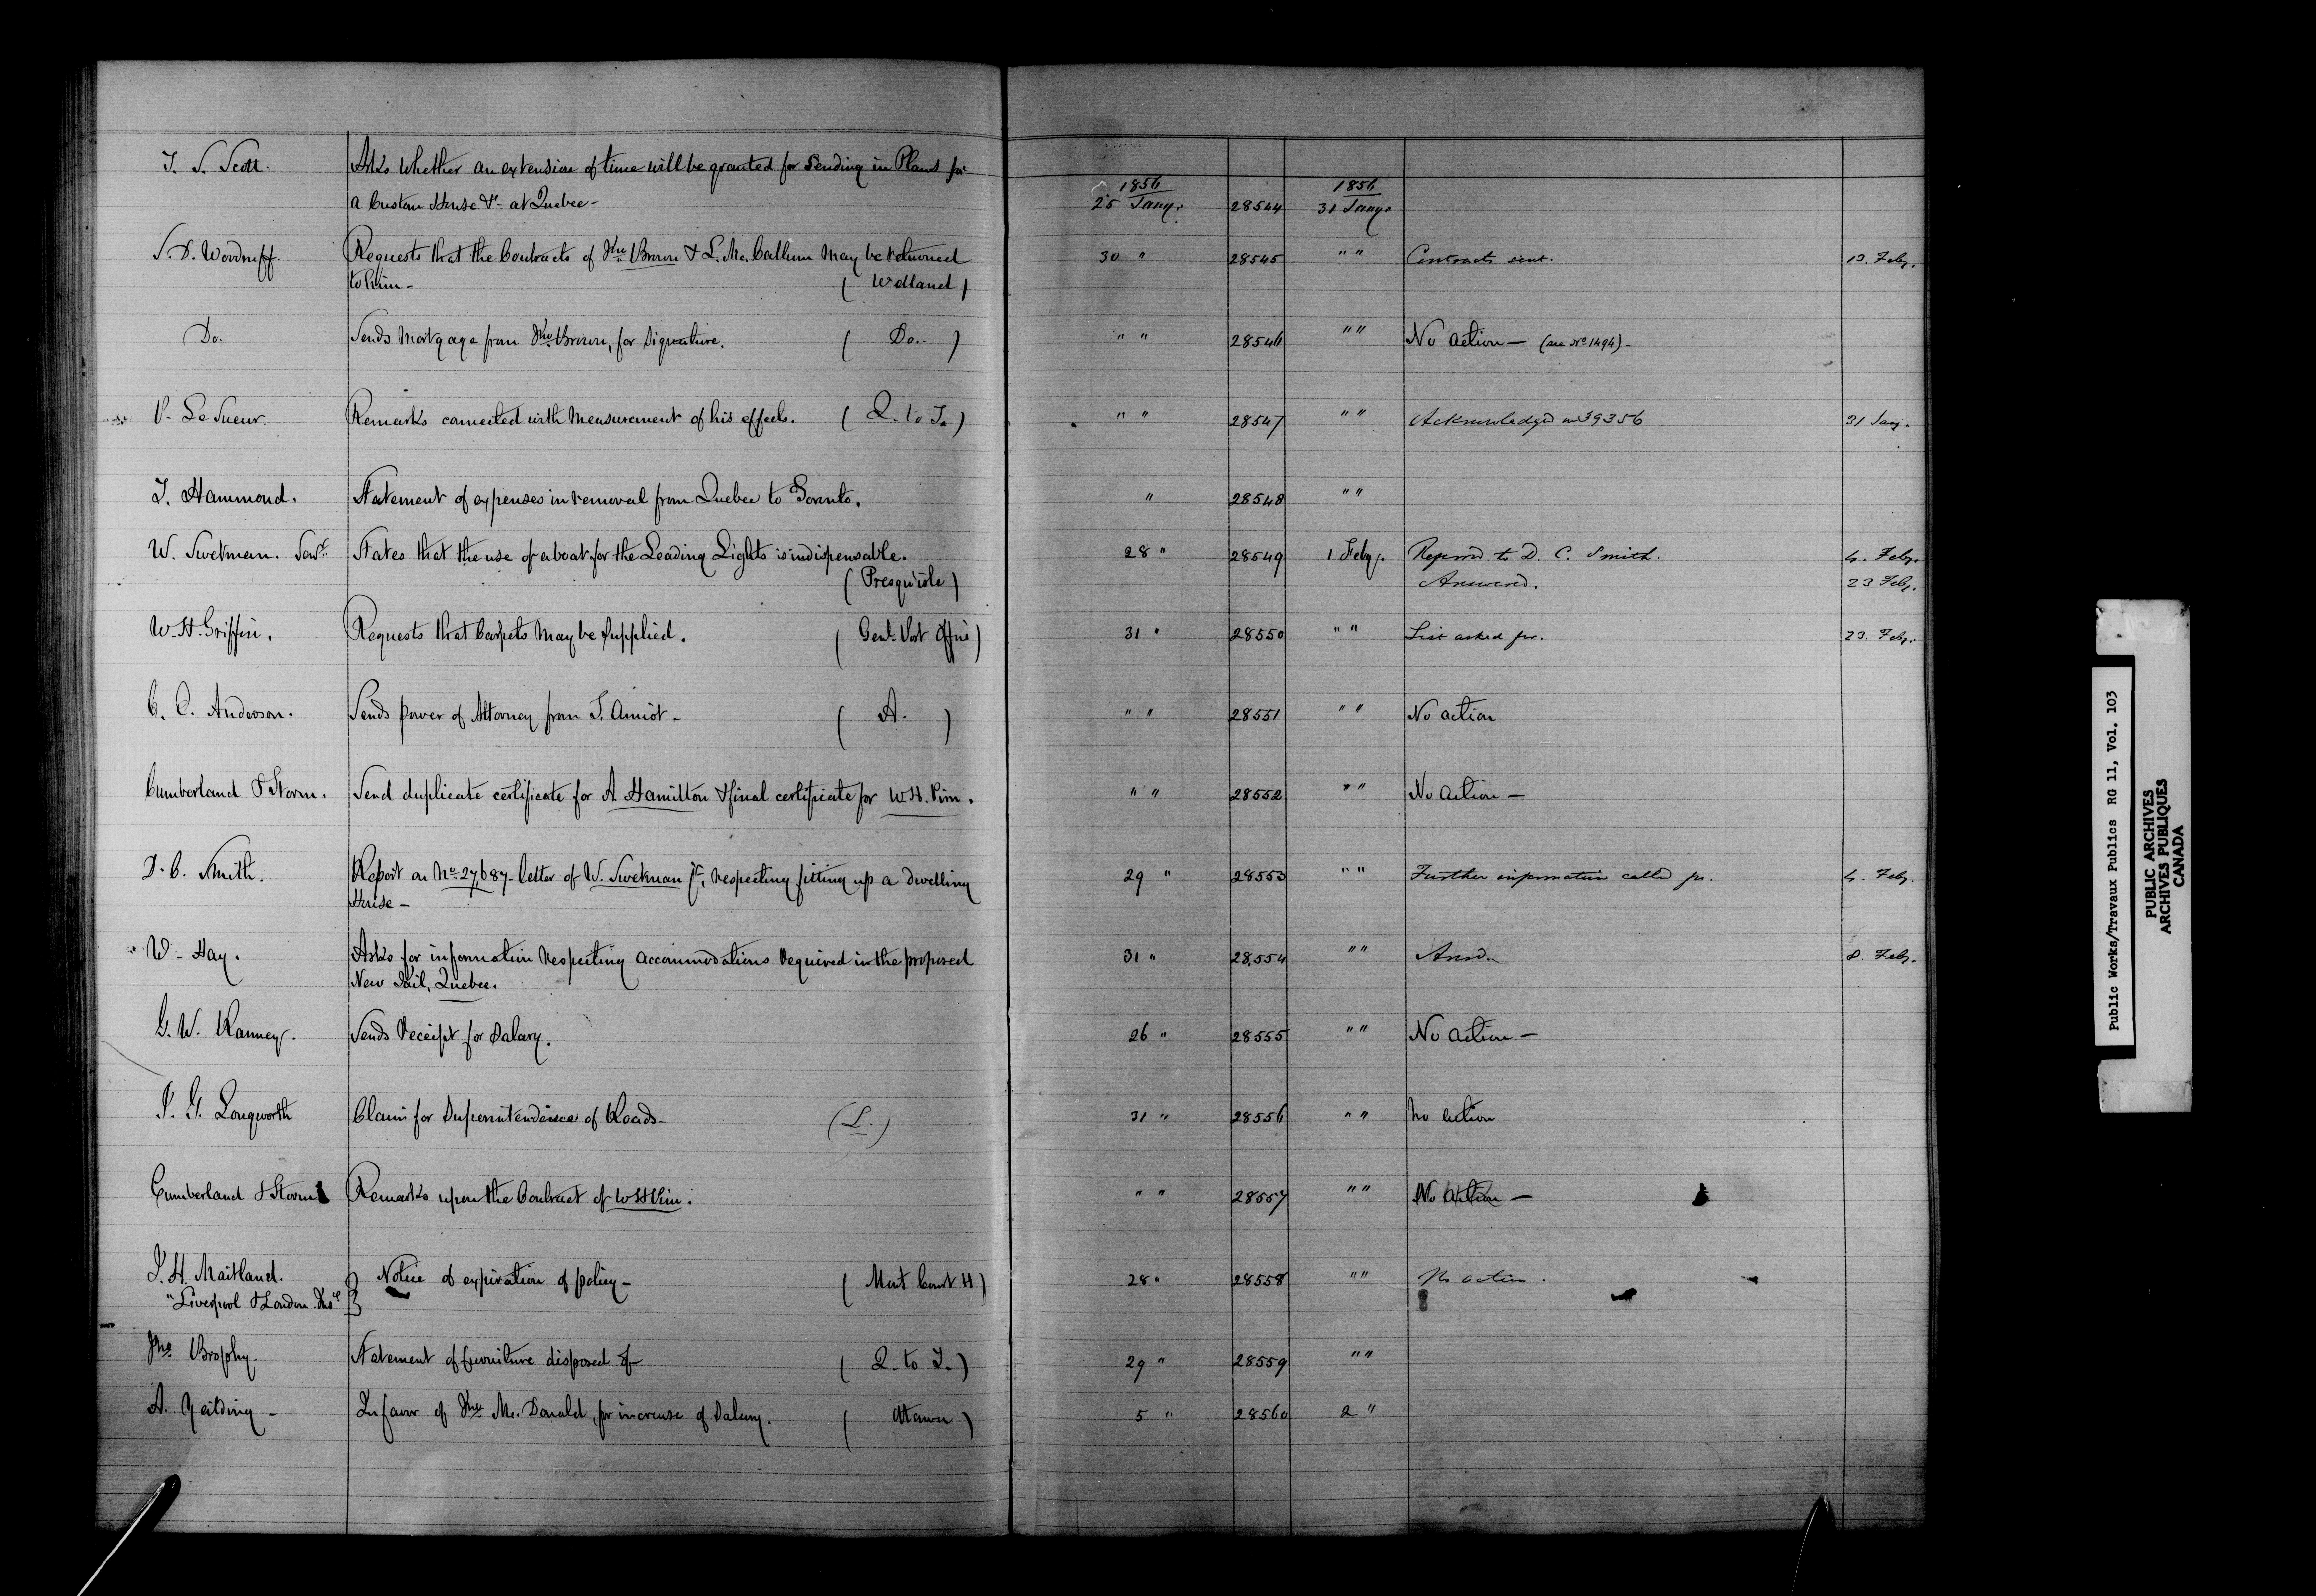 T. S. Scott. Asks whether an extension of time will be granted for sending in Plans for
a Custom House &c - at Quebec - 1856 25 Jany. 28544 1856 31 Jany.
S. D. Woodruff. Requests that the Contracts of Jno. Brown & L. Mc.Callum may be returned 30 " 28545 " " Contracts sent. 13. Feby.
to him - ( Welland )
Do. Sends Mortgage from Jno. Brown, for Signature. ( Do. ) " " 28546 " " No action - (see No. 1494) -
P. Le Sueur. Remarks connected with Measurement of his effects. ( Q. to T. ) " " 28547 " " Acknowledged 39356 31 Jany.
T. Hammond. Statement of expenses in removal from Quebec to Toronto. " 28548 " "
W. Swetman. States that the use of a boat for the Leading Lights is indispensable. 28 " 28549 1 Feby. Referred to D. C. Smith. 4. Feby.
( Presqu'isle ) Answered. 23 Feby.
W. H. Griffin. Requests that Carpets may be supplied. ( Genl. Post Office ) 31 " 28550 " " List asked for. 23. Feby.
C. C. Anderson. Sends power of Attorney from T. Amiot - ( A. ) " " 28551 " " No action
Cumberland & Storm. Send duplicate certificate for A Hamilton & final certificate for W. H. Pim. " " 28552 " " No Action -
D. C. Smith. Report on No. 27,687 - letter of W. Swetman jr., respecting fitting up a dwelling 29 " 28553 " " Further information called for. 4. Feby.
House -
W. Hay. Asks for information respecting accommodations required in the proposed 31 " 28,554 " " Ansd. 8. Feby.
New Jail, Quebec.
G. W. Ranney. Sends receipt for Salary. 26 " 28555 " " No action -
J. G. Longworth Claim for Superintendence of Roads - (L.) 31 " 28556 " " No action
Cumberland & Storm Remarks upon the Contract of W H Pim. " " 28557 " " No action -
J. H. Maitland. Notice of expiration of policy - ( Mont Court H. ) 28 " 28558 " " No action.
"Liverpool & London Inse.
Jno. Brophy. Statement of furniture disposed of - ( Q. to T. ) 29 " 28559 " "
A. Yeilding - In favor of Jno. Mc.Donald, for increase of Salary. ( Ottawa ) 5 " 28560 2 "
Public Works/Travaux Publics RG 11, Vol. 103
PUBLIC ARCHIVES
ARCHIVES PUBLIQUES
CANADA